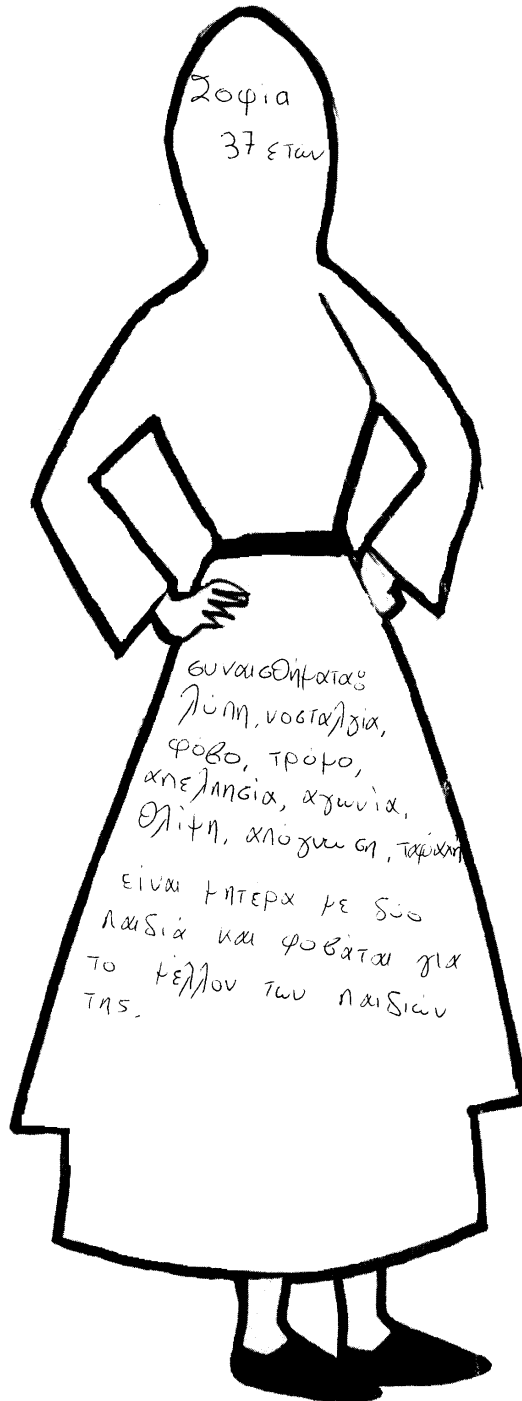 Σοφία
37 ετών
συναισθήματα:
λύπη, νοσταλγία,
φόβο, τρόμο,
απελπησία, αγωνία,
θλίψη, απόγνωση, ταραχή
είναι μητέρα με δύο
παιδιά και φοβάται για
το μέλλον των παιδιών
της.